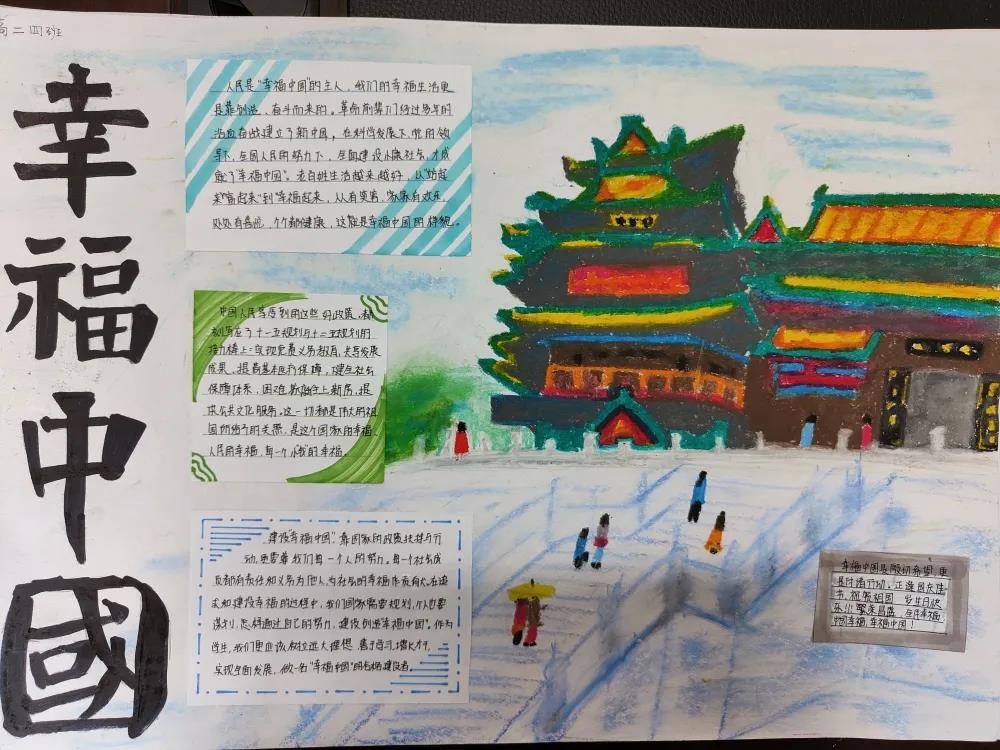 高二四班
幸福中國
人民是“幸福中国”的主人，我们的幸福生活更
是靠创造，奋斗而来的。革命前辈们经过多年的
浴血奋战建立了新中国，在科学发展下，党的领
导下，全国人民的努力下，全面建设小康社会，才成
就了“幸福中国”。老百姓生活越来越好，从“站起
来”“富起来”到“幸福起来，人人有笑容，家家有欢乐，
处处有喜悦，个个都健康，这就是幸福中国的样貌。
中国人民享受到的这些好政策，都
刻写在了十一五规划与十二五规划的
接力棒上：实现免费义务教育，共享发展
成果，提高基本医疗保障，健全社会
保障体系，困难家庭住上新房，提
供公共文化服务。这一切都是伟大的祖
国所给予的关照，是这个国家的幸福，
人民的幸福，每一个小我的幸福。
建设“幸福中国”，靠国家的政策扶持与行
动，更需要我们每一个人的努力。每一个社会成
员都有责任和义务为他人，为社会的幸福作贡献。在追
求和建设幸福的过程中，我们国家需要规划，个人也要
谋划，怎样通过自己的努力，建设创造幸福中国”。作为
学生，我们更应该树立远大理想，善于学习，增长才干，
实现全面发展，做一名“幸福中国”的合格建设者。
幸福中国是殷切希望，更
是付诸行动。正逢国庆佳
节，祝愿祖国 生日快
乐！繁荣昌盛，岁月幸福
中国幸福，幸福中国！